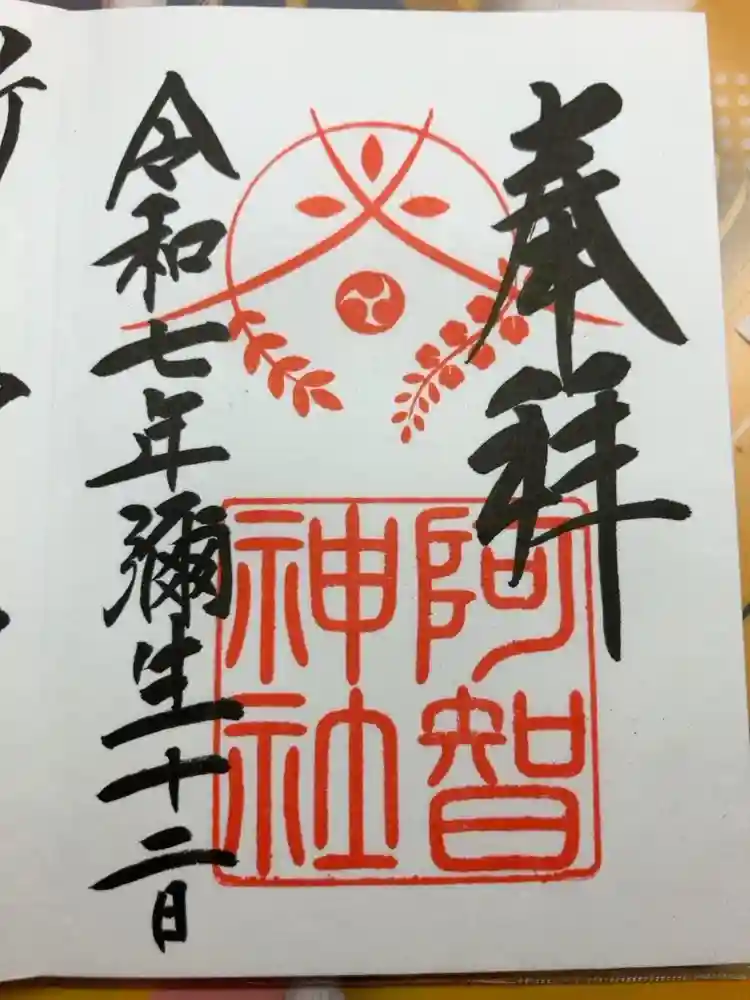 奉拝
阿智
神社
令和七年彌生十二日